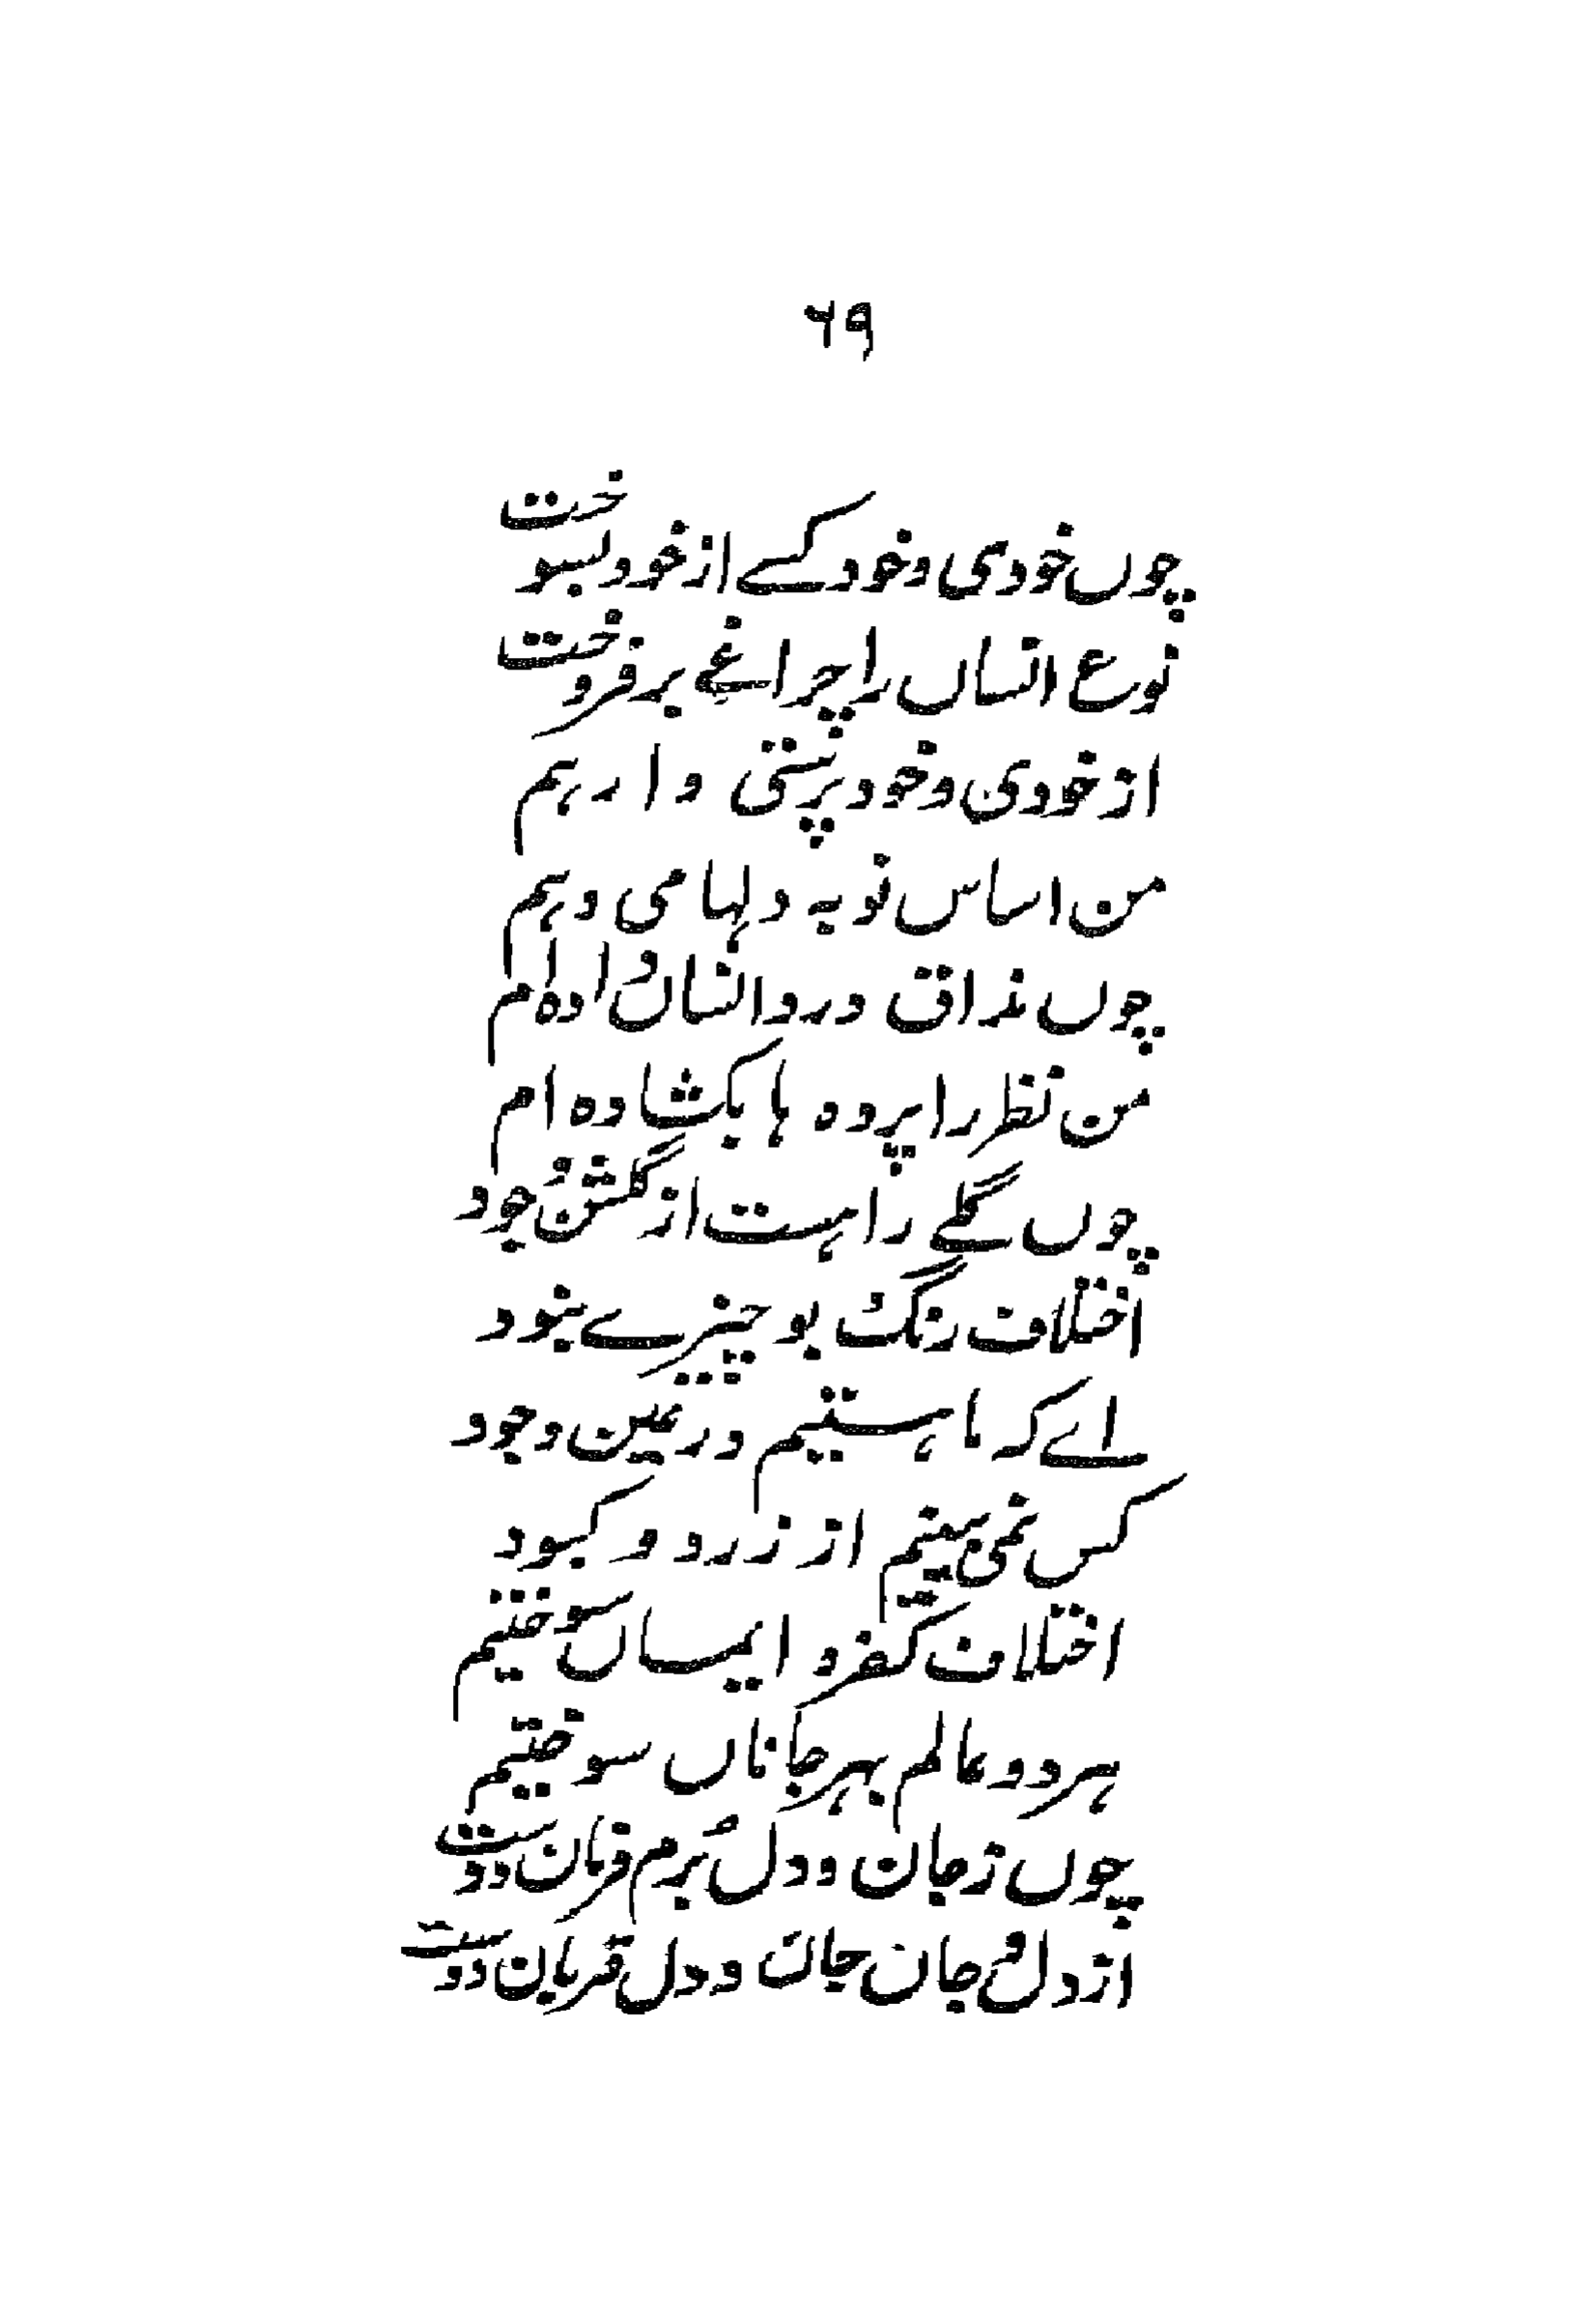 ۶۹
چوں خودی و خود کسے از خود بسوخت
نوع انساں را چراغے بر فروخت
از خودی و خود پرستی وا رہم
من اساس نو بہ دلہا می دہم
چوں مذاق درد انساں دادہ ام
من نظر را پردہ ہا بکشادہ ام
چوں گلے را ہست از گلشن وجود
اختلاف رنگ و بو چیزے نبود
اے کہ ما ہستیم در عین وجود
کس نمی بینم از زرد و کبود
اختلاف کفر و ایماں سوختیم
ہر دو عالم بہر جاناں سوختیم
چوں ز جان و دل برم فرمان دوست
از دل و جان جان و دل قربان دوست